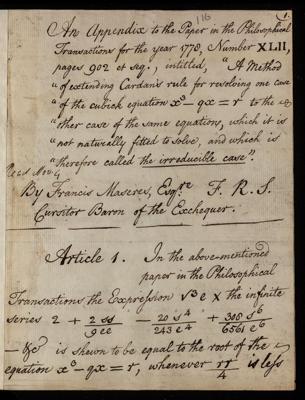 116
1.
An Appendix to the Paper in the Philosophical
Transactions for the year 1778, Number XLII,
pages 902 et seq., intitled, "A Method
"of extending Cardan's rule for resolving one case
"of the cubick equation x³ - qx = r to the
"other case of the same equations, which it is
"not naturally fitted to solve, and which is
"therefore called the irreducible case".
By Francis Maseres, Esqre. F. R. S.
Cursitor Baron of the Exchequer.
Article 1. In the above-mentioned
paper in the Philosophical
Transactions the Expression √³e × the infinite
series 2 + 2ss/9ee - 20s⁴/243e⁴ + 308s⁶/6561e⁶
- &c is shewn to be equal to the root of the
equation x³ - qx = r, whenever rr/4 is less